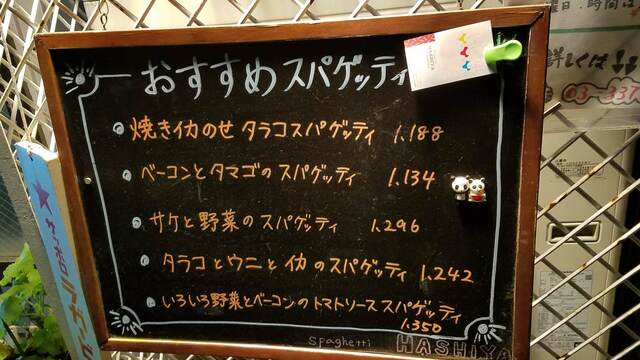 おすすめスパゲッティ
焼きイカのせ タラコスパゲッティ 1.188
ベーコンとタマゴの スパゲッティ 1.134
サケと野菜の スパゲッティ 1.296
タラコとウニとイカのスパゲッティ 1.242
いろいろ野菜とベーコンのトマトソース スパゲッティ
1.350
spaghetti HASHIYA
03-337